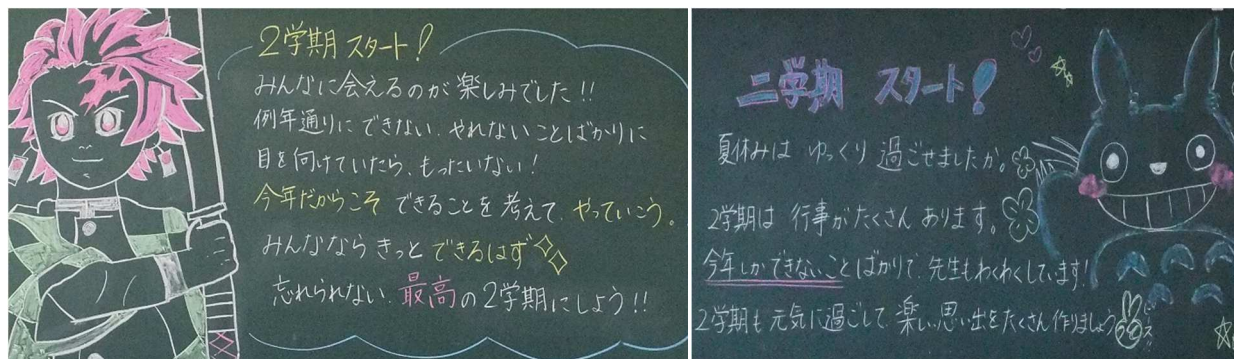 2学期 スタート!
みんなに会えるのが楽しみでした!!
例年通りに できない、やれない ことばかりに
目を向けていたら、もったいない!
今年だからこそ できることを 考えて、やっていこう。
みんなならきっと できるはず
忘れられない、最高の2学期にしよう!!
二学期 スタート!
夏休みは ゆっくり 過ごせましたか。
2学期は 行事が たくさん あります。
今年しかできないことばかりで、先生もわくわくしています!
2学期も 元気に過ごして 楽しい思い出をたくさん作りましょう
ピース